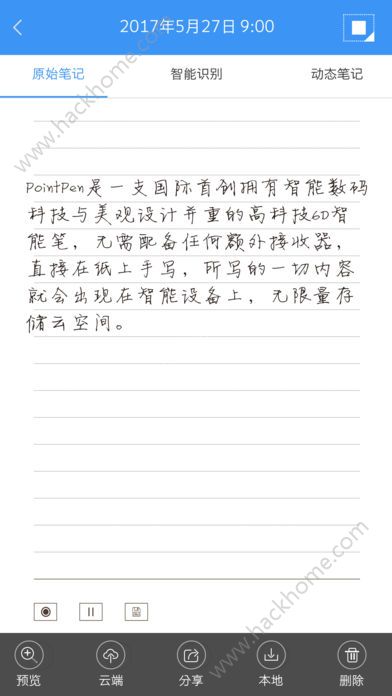 2017年5月27日 9:00
原始笔记 智能识别 动态笔记
www.hackhome.com
PointPen是一支国际首创拥有智能数码
科技与美观设计并重的高科技6D智
能笔，无需配备任何额外接收器，
直接在纸上手写，所写的一切内容
就会出现在智能设备上，无限量存
储云空间。
www.hackhome.com
预览 云端 分享 本地 删除